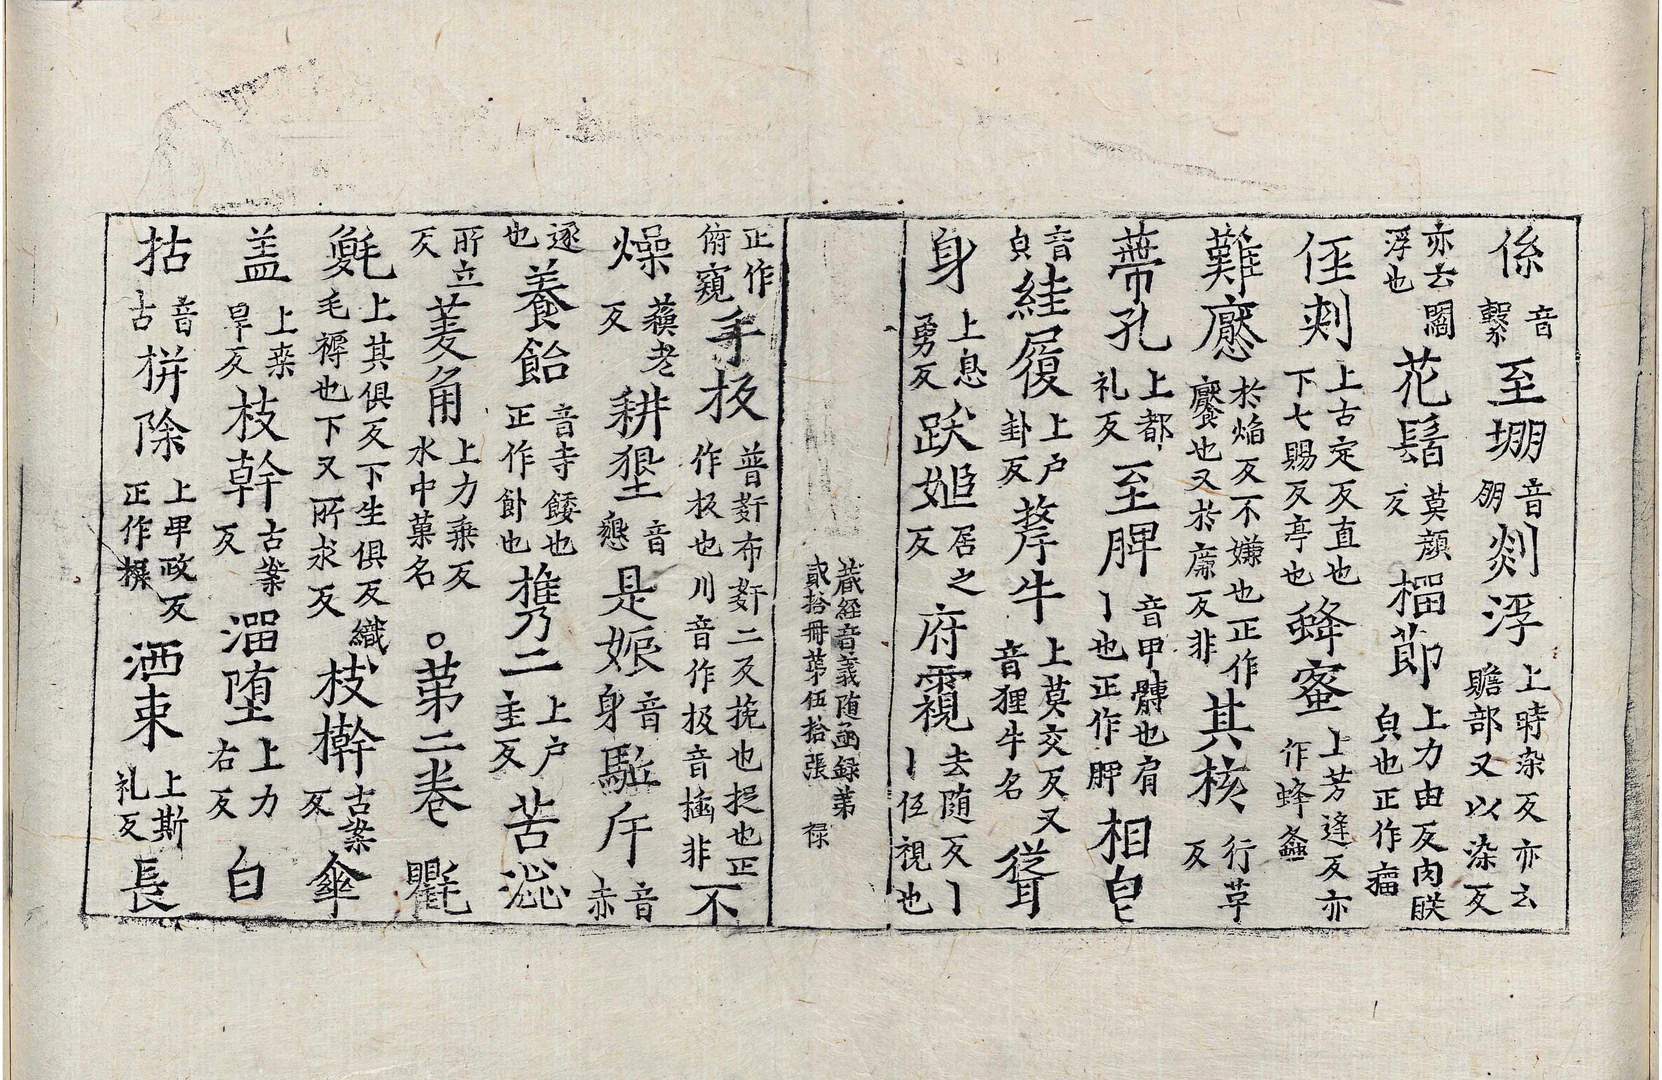 係音繫至堋音朋剡浮上時染反亦云贍部又以染反
亦云閻浮也花鬚莫顏反榴莭上力由反肉䏦皃也正作瘤
侹刾上古定反直也下七賜反亭也蜂蜜上芳逢反亦作蜂螽
難懕於焰反不嫌也正作饜也又於廉反非其核行草反
蔕孔上都礼反至胛音甲髆也肩丨也正作胛相皃
音皃絓履上户卦反犛牛上莫交反又音狸牛名聳
身上息勇反跃姫居之反府覗去随反丨伍視也
藏經音義随函録第貳拾冊苐伍拾張 禄
正作俯窺手扳普姧布姧二反挽也捉也正作板也川音作极音㮀非不
燥蘓老反耕墾音懇是娠音身駈斥音赤
逐也養飴音寺餧也正作飤也㩗二上户圭反苦澁
所立反菱角上力乗反水中菓名○苐二卷氍
毹上其俱反下生俱反織毛褥也下又所求反枝檊古案反傘
盖上桒旱反枝幹古案反溜堕上力右反白
拈音古栟除上甲政反正作摒洒束上斯礼反長